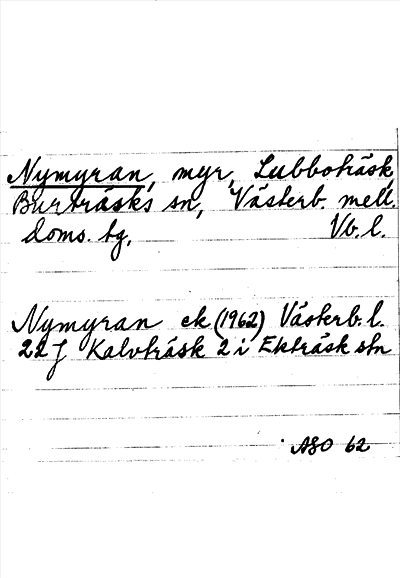 Nymyran, myr, Lubboträsk,
Burträsks sn, Västerb. mell.
doms. tg, Vb. l.
Nymyran ek (1962) Västerb. l.
22 f Kalvträsk 2 i Ekträsk stn
ASO 62